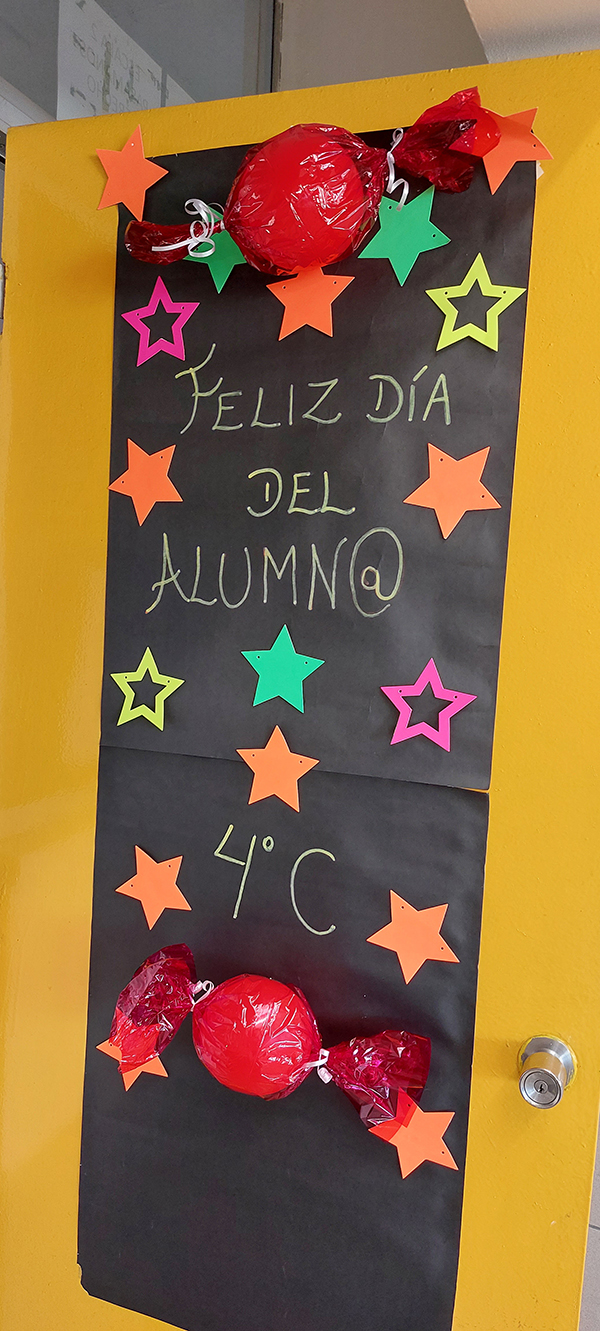 FELIZ DÍA
DEL
ALUMN@
4° C